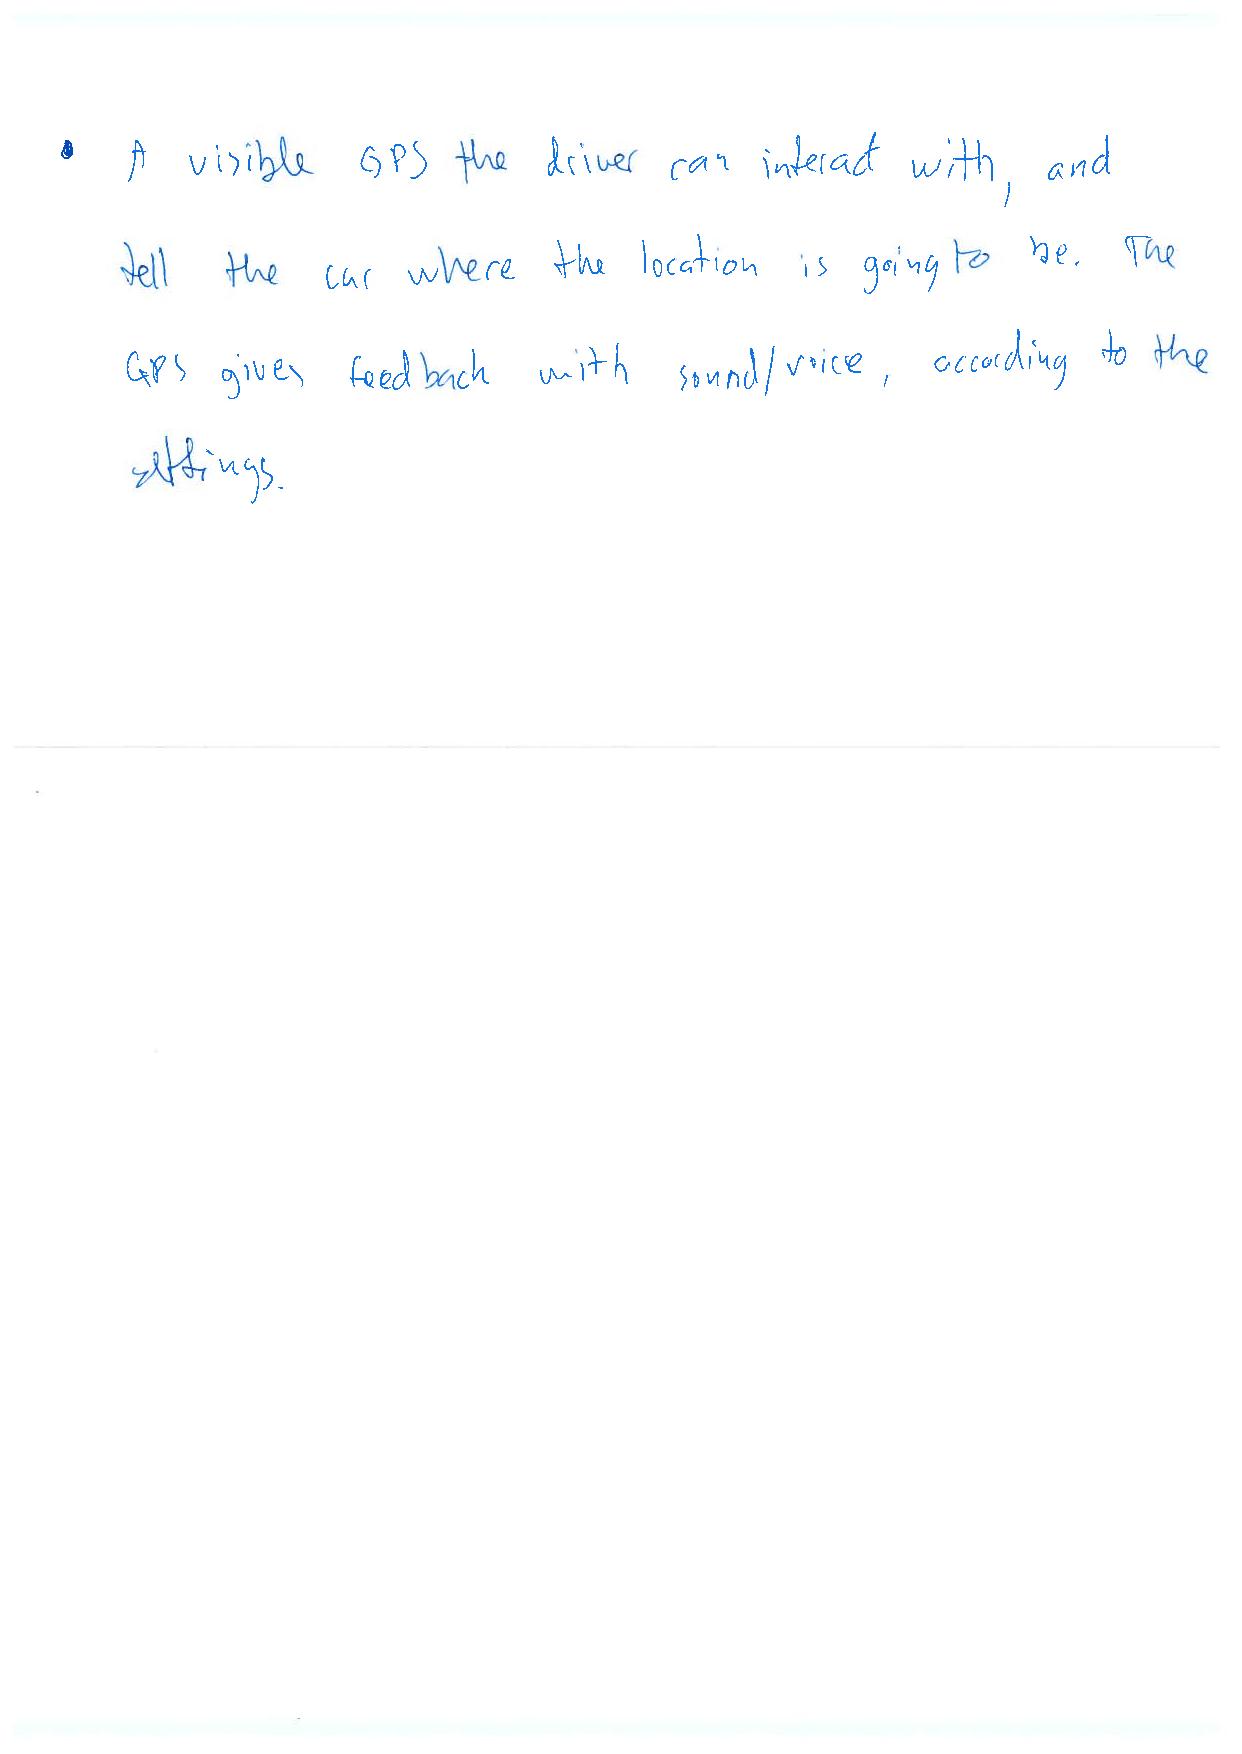 • A visible GPS the driver can interact with, and
tell the car where the location is going to be. The
GPS gives feedback with sound/voice, according to the
settings.